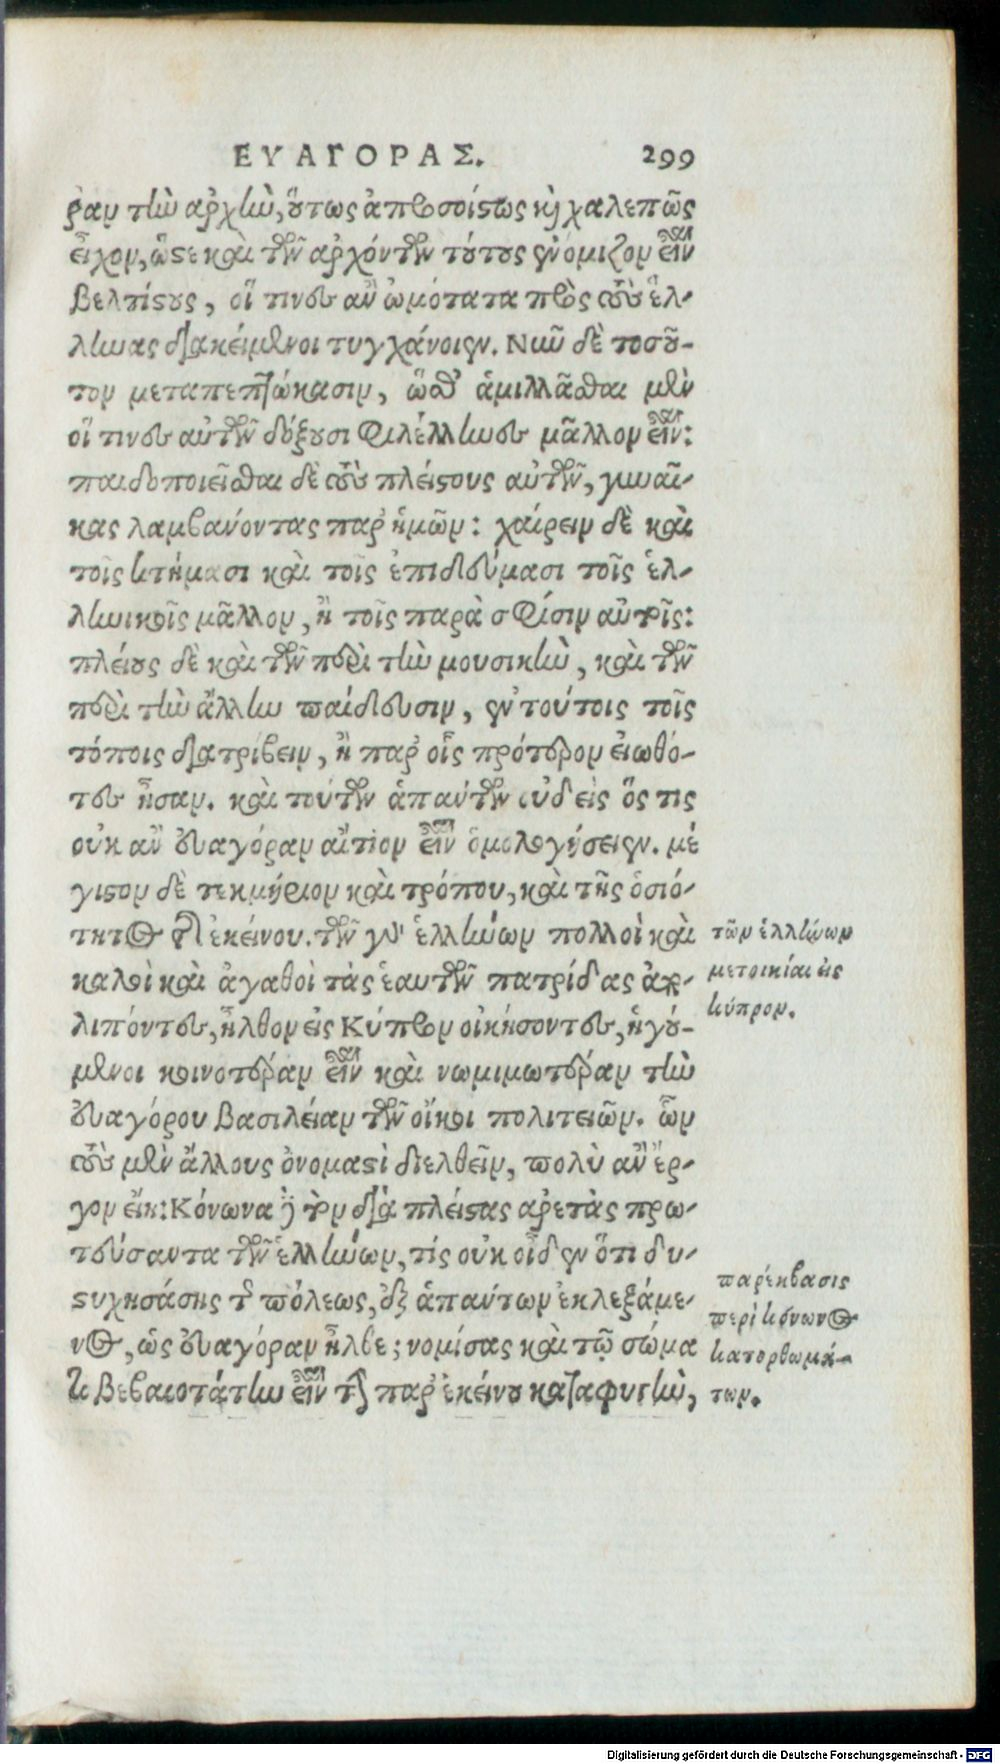 ΕΥΑΓΟΡΑΣ. 299
ραν τὴν ἀρχὴν, οὕτως ἀπροσοίστως καὶ χαλεπῶς
εἶχον, ὥστε καὶ τῶν ἀρχόντων τούτους ἐνόμιζον εἶναι
βελτίστους, οἵ τινες ἂν ὠμότατα πρὸς τοὺς ἕλ-
ληνας διακείμενοι τυγχάνοιεν. Νῦν δὲ τοσοῦ-
τον μεταπεπτώκασιν, ὥσθ' ἁμιλλᾶσθαι μὲν
οἵ τινες αὐτῶν δόξουσι φιλέλληνες μᾶλλον εἶναι:
παιδοποιεῖσθαι δὲ τοὺς πλείστους αὐτῶν, γυναῖ-
κας λαμβάνοντας παρ' ἡμῶν: χαίρειν δὲ καὶ
τοῖς κτήμασι καὶ τοῖς ἐπιδεύμασι τοῖς ἑλ-
ληνικοῖς μᾶλλον, ἢ τοῖς παρὰ σφίσιν αὐτοῖς:
πλείους δὲ καὶ τῶν περὶ τὴν μουσικὴν, καὶ τῶν
περὶ τὴν ἄλλην παίδευσιν, ἐν τούτοις τοῖς
τόποις διατρίβειν, ἢ παρ' οἷς πρότερον εἰωθό-
τες ἦσαν. καὶ τούτων ἁπάντων οὐδεὶς ὅς τις
οὐκ ἂν εὐαγόραν αἴτιον εἶναι ὁμολογήσειεν. μέ
γιστον δὲ τεκμήριον καὶ τρόπου, καὶ τῆς ὁσιό-
τητος τῆς ἐκείνου. τῶν γὰρ ἑλλήνων πολλοὶ καὶ
καλοὶ καὶ ἀγαθοὶ τὰς ἑαυτῶν πατρίδας ἀπο-
λιπόντες, ἦλθον εἰς Κύπρον οἰκήσοντες, ἡγού-
μενοι κοινοτέραν εἶναι καὶ νωμιμωτέραν τὴν
εὐαγόρου βασιλείαν τῶν οἴκοι πολιτειῶν. ὧν
τοὺς μὲν ἄλλους ὀνομαστὶ διελθεῖν, πολὺ ἂν ἔρ-
γον εἴη: Κόνωνα δὲ τὸν διὰ πλείστας ἀρετὰς πρω-
τεύσαντα τῶν ἑλλήνων, τίς οὐκ οἶδεν ὅτι δυ-
στυχησάσης τῆς πόλεως, ἐξ ἁπάντων ἐκλεξάμε-
νος, ὡς εὐαγόραν ἦλθε; νομίσας καὶ τῷ σώμα
τι βεβαιοτάτην εἶναι τὴν παρ' ἐκείνου καταφυγὴν,
τῶν ἑλλήνων
μετοικίαι εἰς
κύπρον.
παρέκβασις
περὶ κόνωνος
κατορθωμά-
των.
Digitalisierung gefördert durch die Deutsche Forschungsgemeinschaft - DFG